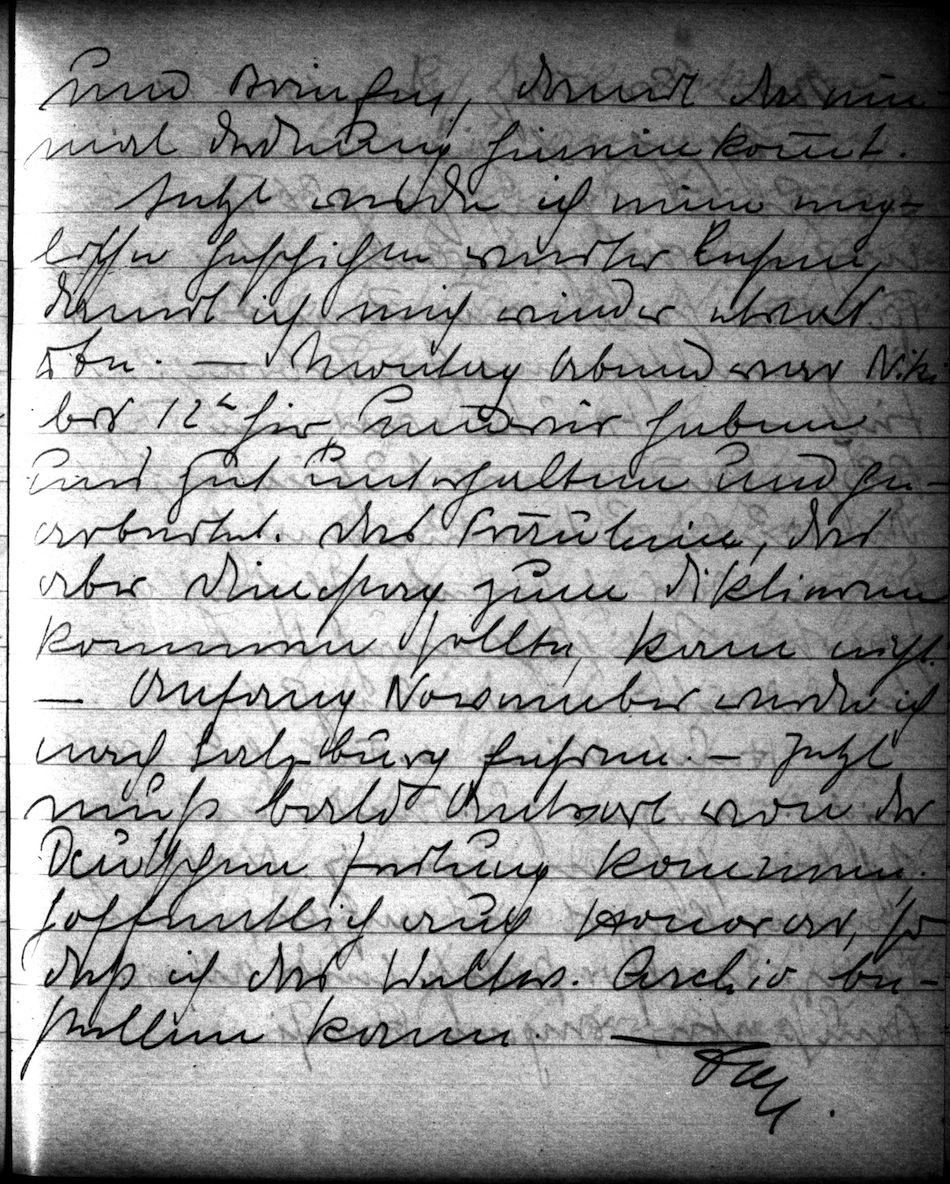 und bringen, damit da nun
mal Ordnung hineinkommt.
Jetzt werde ich meine eng-
lischen Geschichten weiter lesen,
damit ich mich wieder etwas
übe. — Montag Abend war Nik.
bis 12ʰ hier und wir haben
uns gut unterhalten und ge-
arbeitet. Das Fräulein, das
aber Dienstag zum Diktieren
kommen sollte, kam nicht.
— Anfang November werde ich
nach Salzburg fahren. — Jetzt
muß bald Antwort von der
Deutschen Zeitung kommen.
Hoffentlich auch Honorar, so
daß ich das Weltw. Archiv be-
stellen kann. —